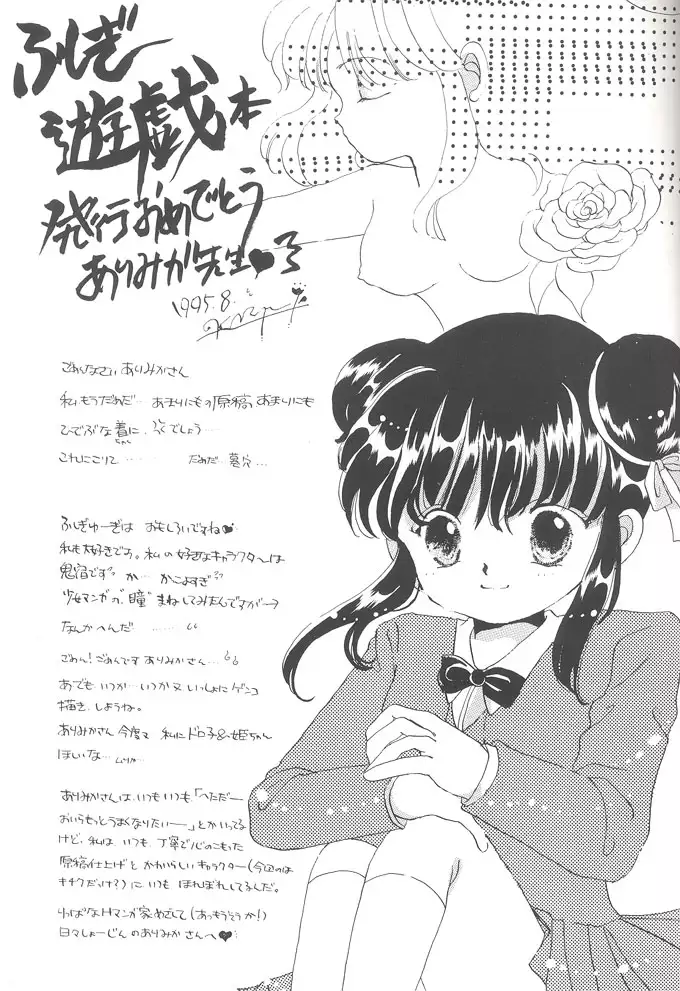 ふしぎ
遊戯本
発行おめでとう
ありみか先生♥
1995.8.
ごめんなさい ありみかさん
私 もうだめだ… あまりにもの原稿 あまりにも
ひでぶな着に、 でしょう…
これにこりて…… だめだ…墓穴…
ふしぎゅーぎは おもしろいですね♥
私も大好きです。私の好きなキャラクターは
鬼宿です。 か… かっこよすぎ
少女マンガっぽい瞳 まねしてみたんですが→
なんかへんだ………
ごめん!ごめんです ありみかさん…
あ、でも、いつか…いつか又、いっしょにゲンコ
描き、しようね。
ありみかさん 今度 私にドロ子&姫ちゃん
ほしいな… ムリか…
ありみかさんは、いつもいつも「へただー
おいらもっとうまくなりたいー」とかいってる
けど、私は、いつも、丁寧で心のこもった
原稿仕上げと かわいらしいキャラクター(今回のは
キチクだっけ?)に いつも ほれぼれしてるんだ。
りっぱなHマンガ家めざして(あっもうそうか!)
日々しょーじんのありみかさんへ♥